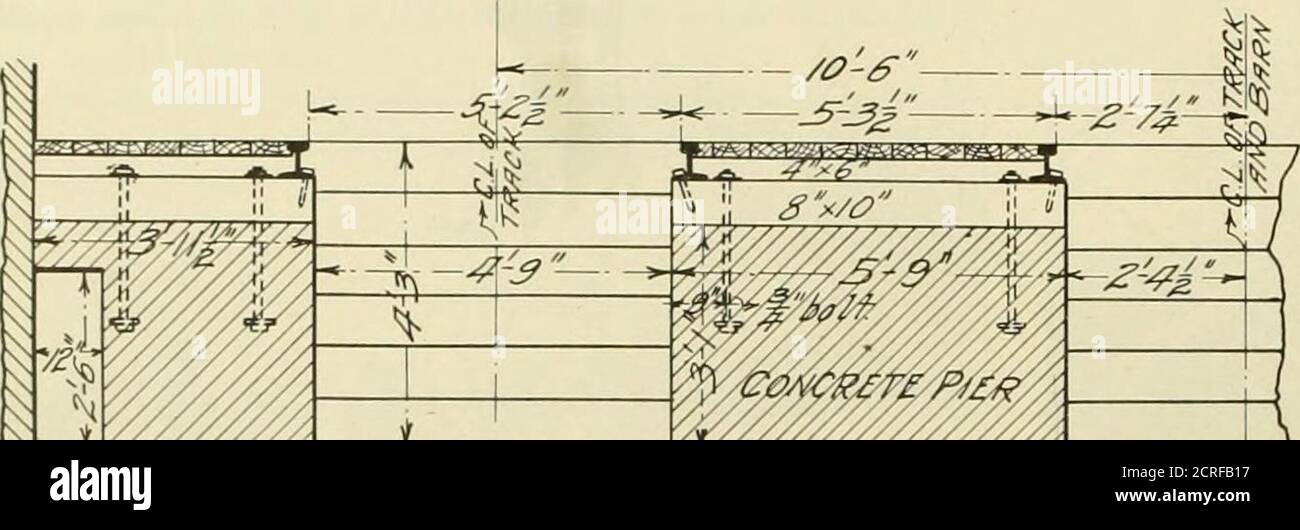 10'-6"
5'-2½"
5'-3½"
2'-7¼"
C.L. OF TRACK
AND BARN
C.L. OF
TRACK
4"x6"
8"x10"
3'-11½"
4'-3"
4'-9"
5'-9"
2'-4½"
9"
¾" bolt
3'-1"
12"
2'-6"
CONCRETE PIER
alamy
a
alamy
Image ID: 2CRFB17
www.alamy.com